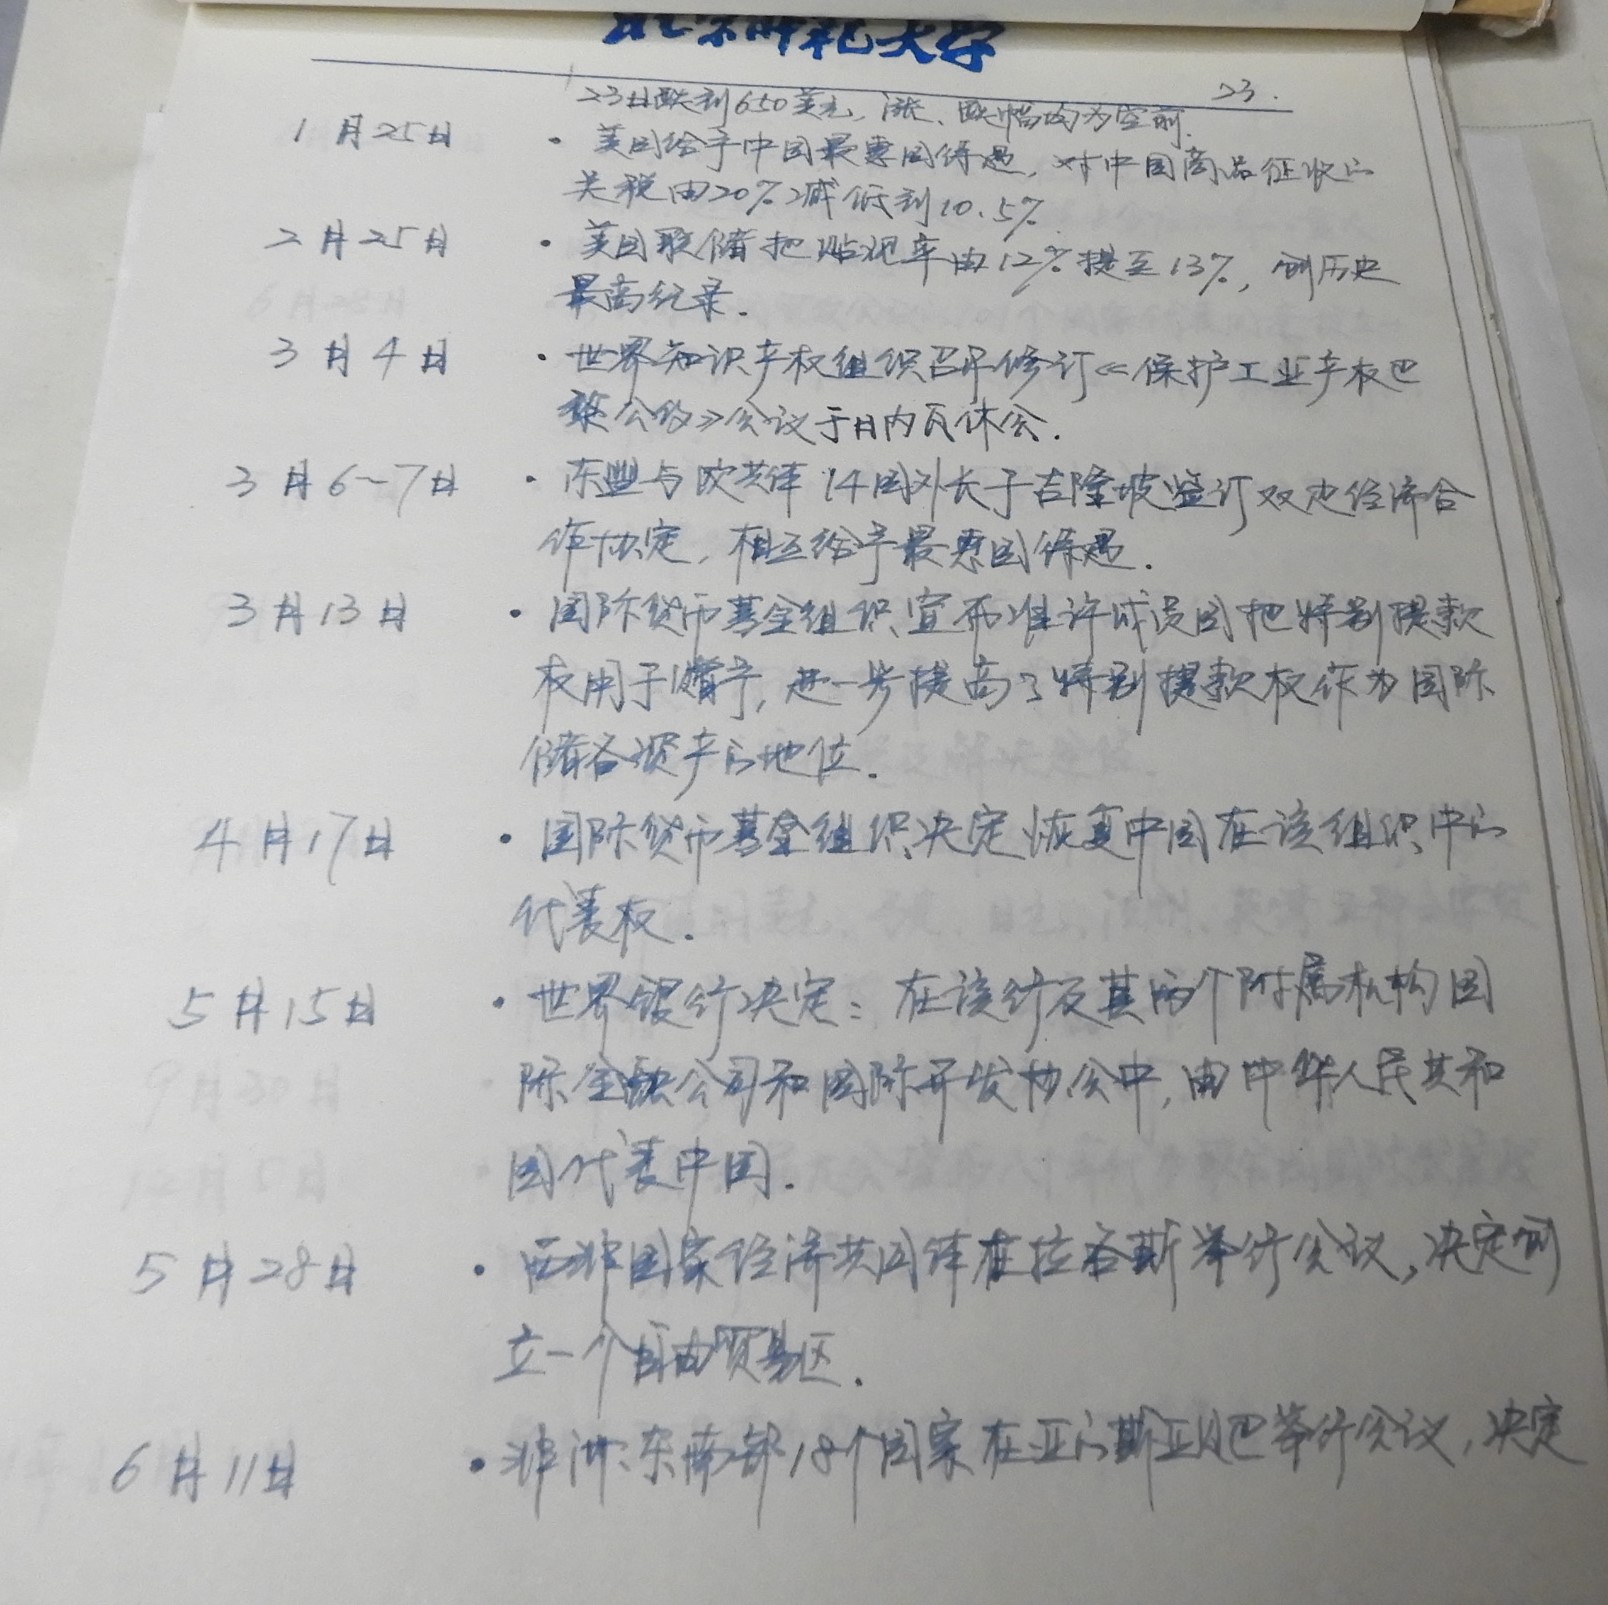 北京师范大学
23.
23日跌到650美元，涨、跌幅均为空前.
1月25日 · 美国给予中国最惠国待遇，对中国商品征收的
关税由20%减低到10.5%
2月25日 · 美国联储把贴现率由12%提至13%，创历史
最高纪录.
3月4日 · 世界知识产权组织召开修订《保护工业产权巴
黎公约》会议于日内瓦休会.
3月6-7日 · 东盟与欧共体14国外长于吉隆坡签订双边经济合
作协定，相互给予最惠国待遇.
3月13日 · 国际货币基金组织宣布准许成员国把特别提款
权用于赠予，进一步提高了特别提款权作为国际
储备资产的地位.
4月17日 · 国际货币基金组织决定恢复中国在该组织中的
代表权.
5月15日 · 世界银行决定：在该行及其两个附属机构国
际金融公司和国际开发协会中，由中华人民共和
国代表中国.
5月28日 · 西非国家经济共同体在拉各斯举行会议，决定创
立一个自由贸易区.
6月11日 · 非洲东南部18个国家在亚的斯亚贝巴举行会议，决定